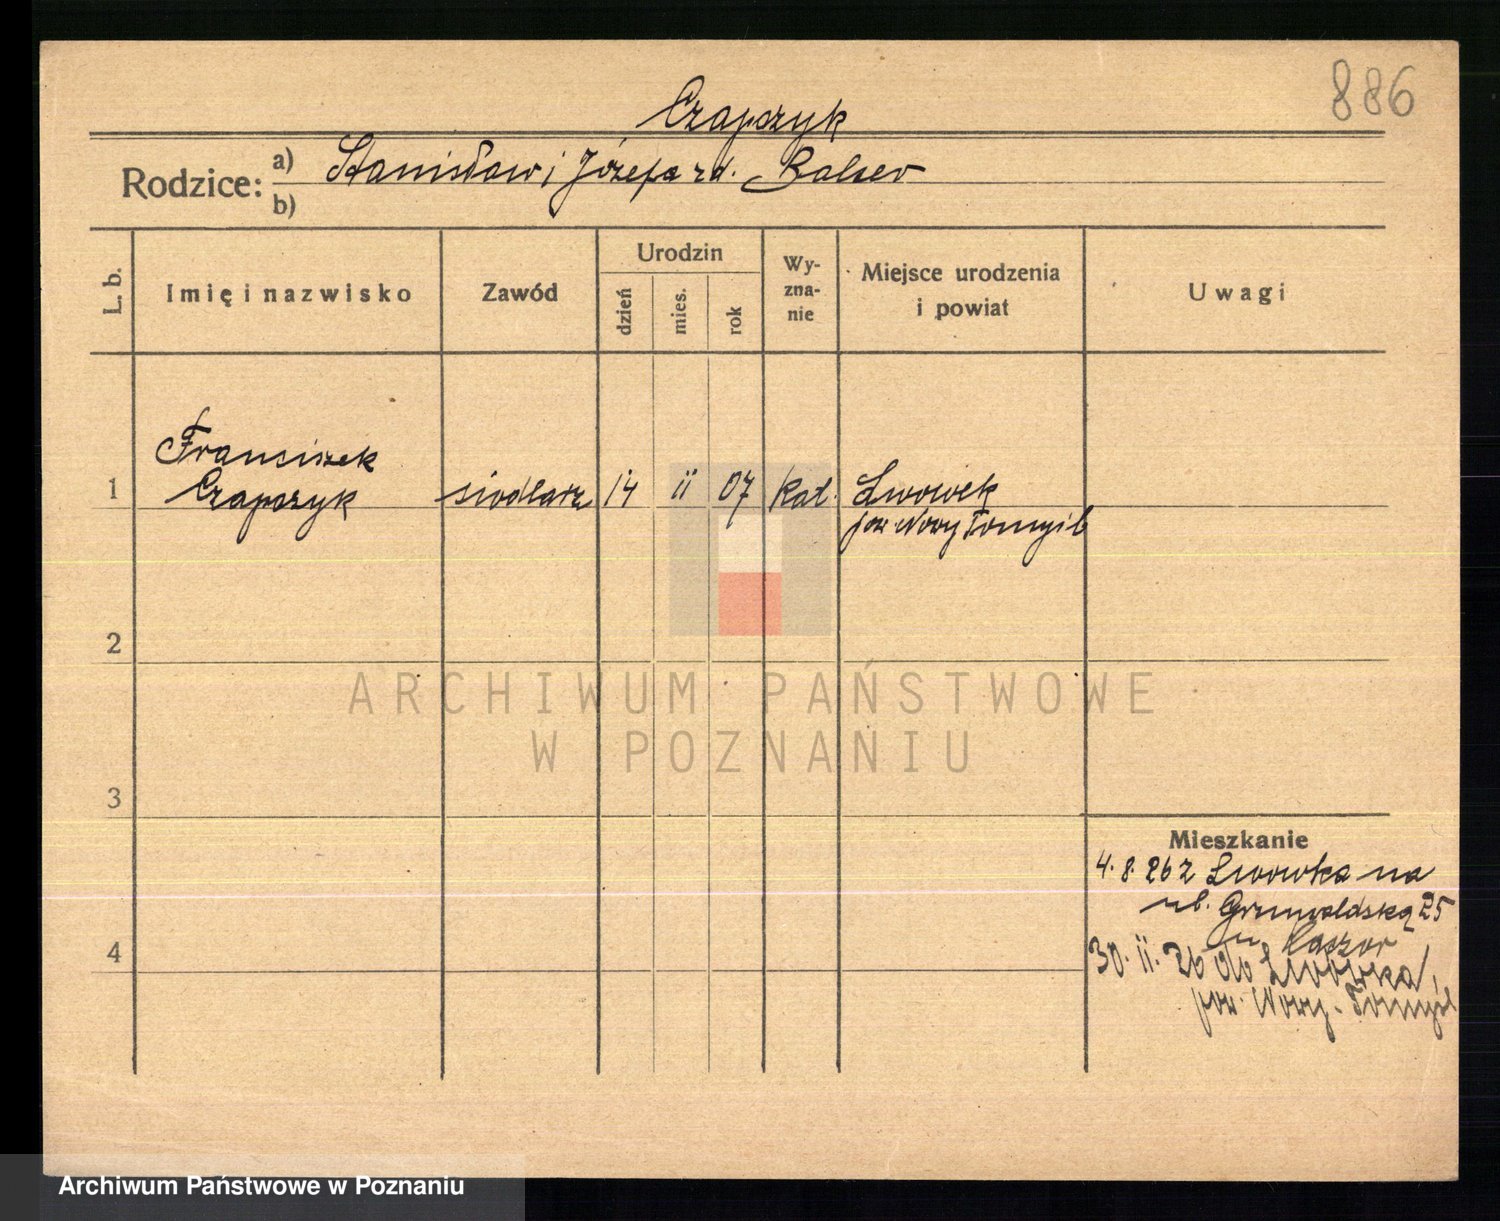 886
Czapczyk
Rodzice: a) Stanisław i Józefa zd. Balser
b)
L. b.
Imię i nazwisko
Zawód
Urodzin
dzień
mies.
rok
Wy-
zna-
nie
Miejsce urodzenia
i powiat
Uwagi
Franciszek
1 Czapczyk siodlarz 14 ii 07 kat. Lwówek
pow. Nowy Tomyśl
2
3
4
Mieszkanie
4. 8. 26 z Lwówka na
ul. Grunwaldską 25
u Kaczor
30. ii. 26 do Lwówka,
pow. Nowy-Tomyśl
ARCHIWUM PAŃSTWOWE
W POZNANIU
Archiwum Państwowe w Poznaniu